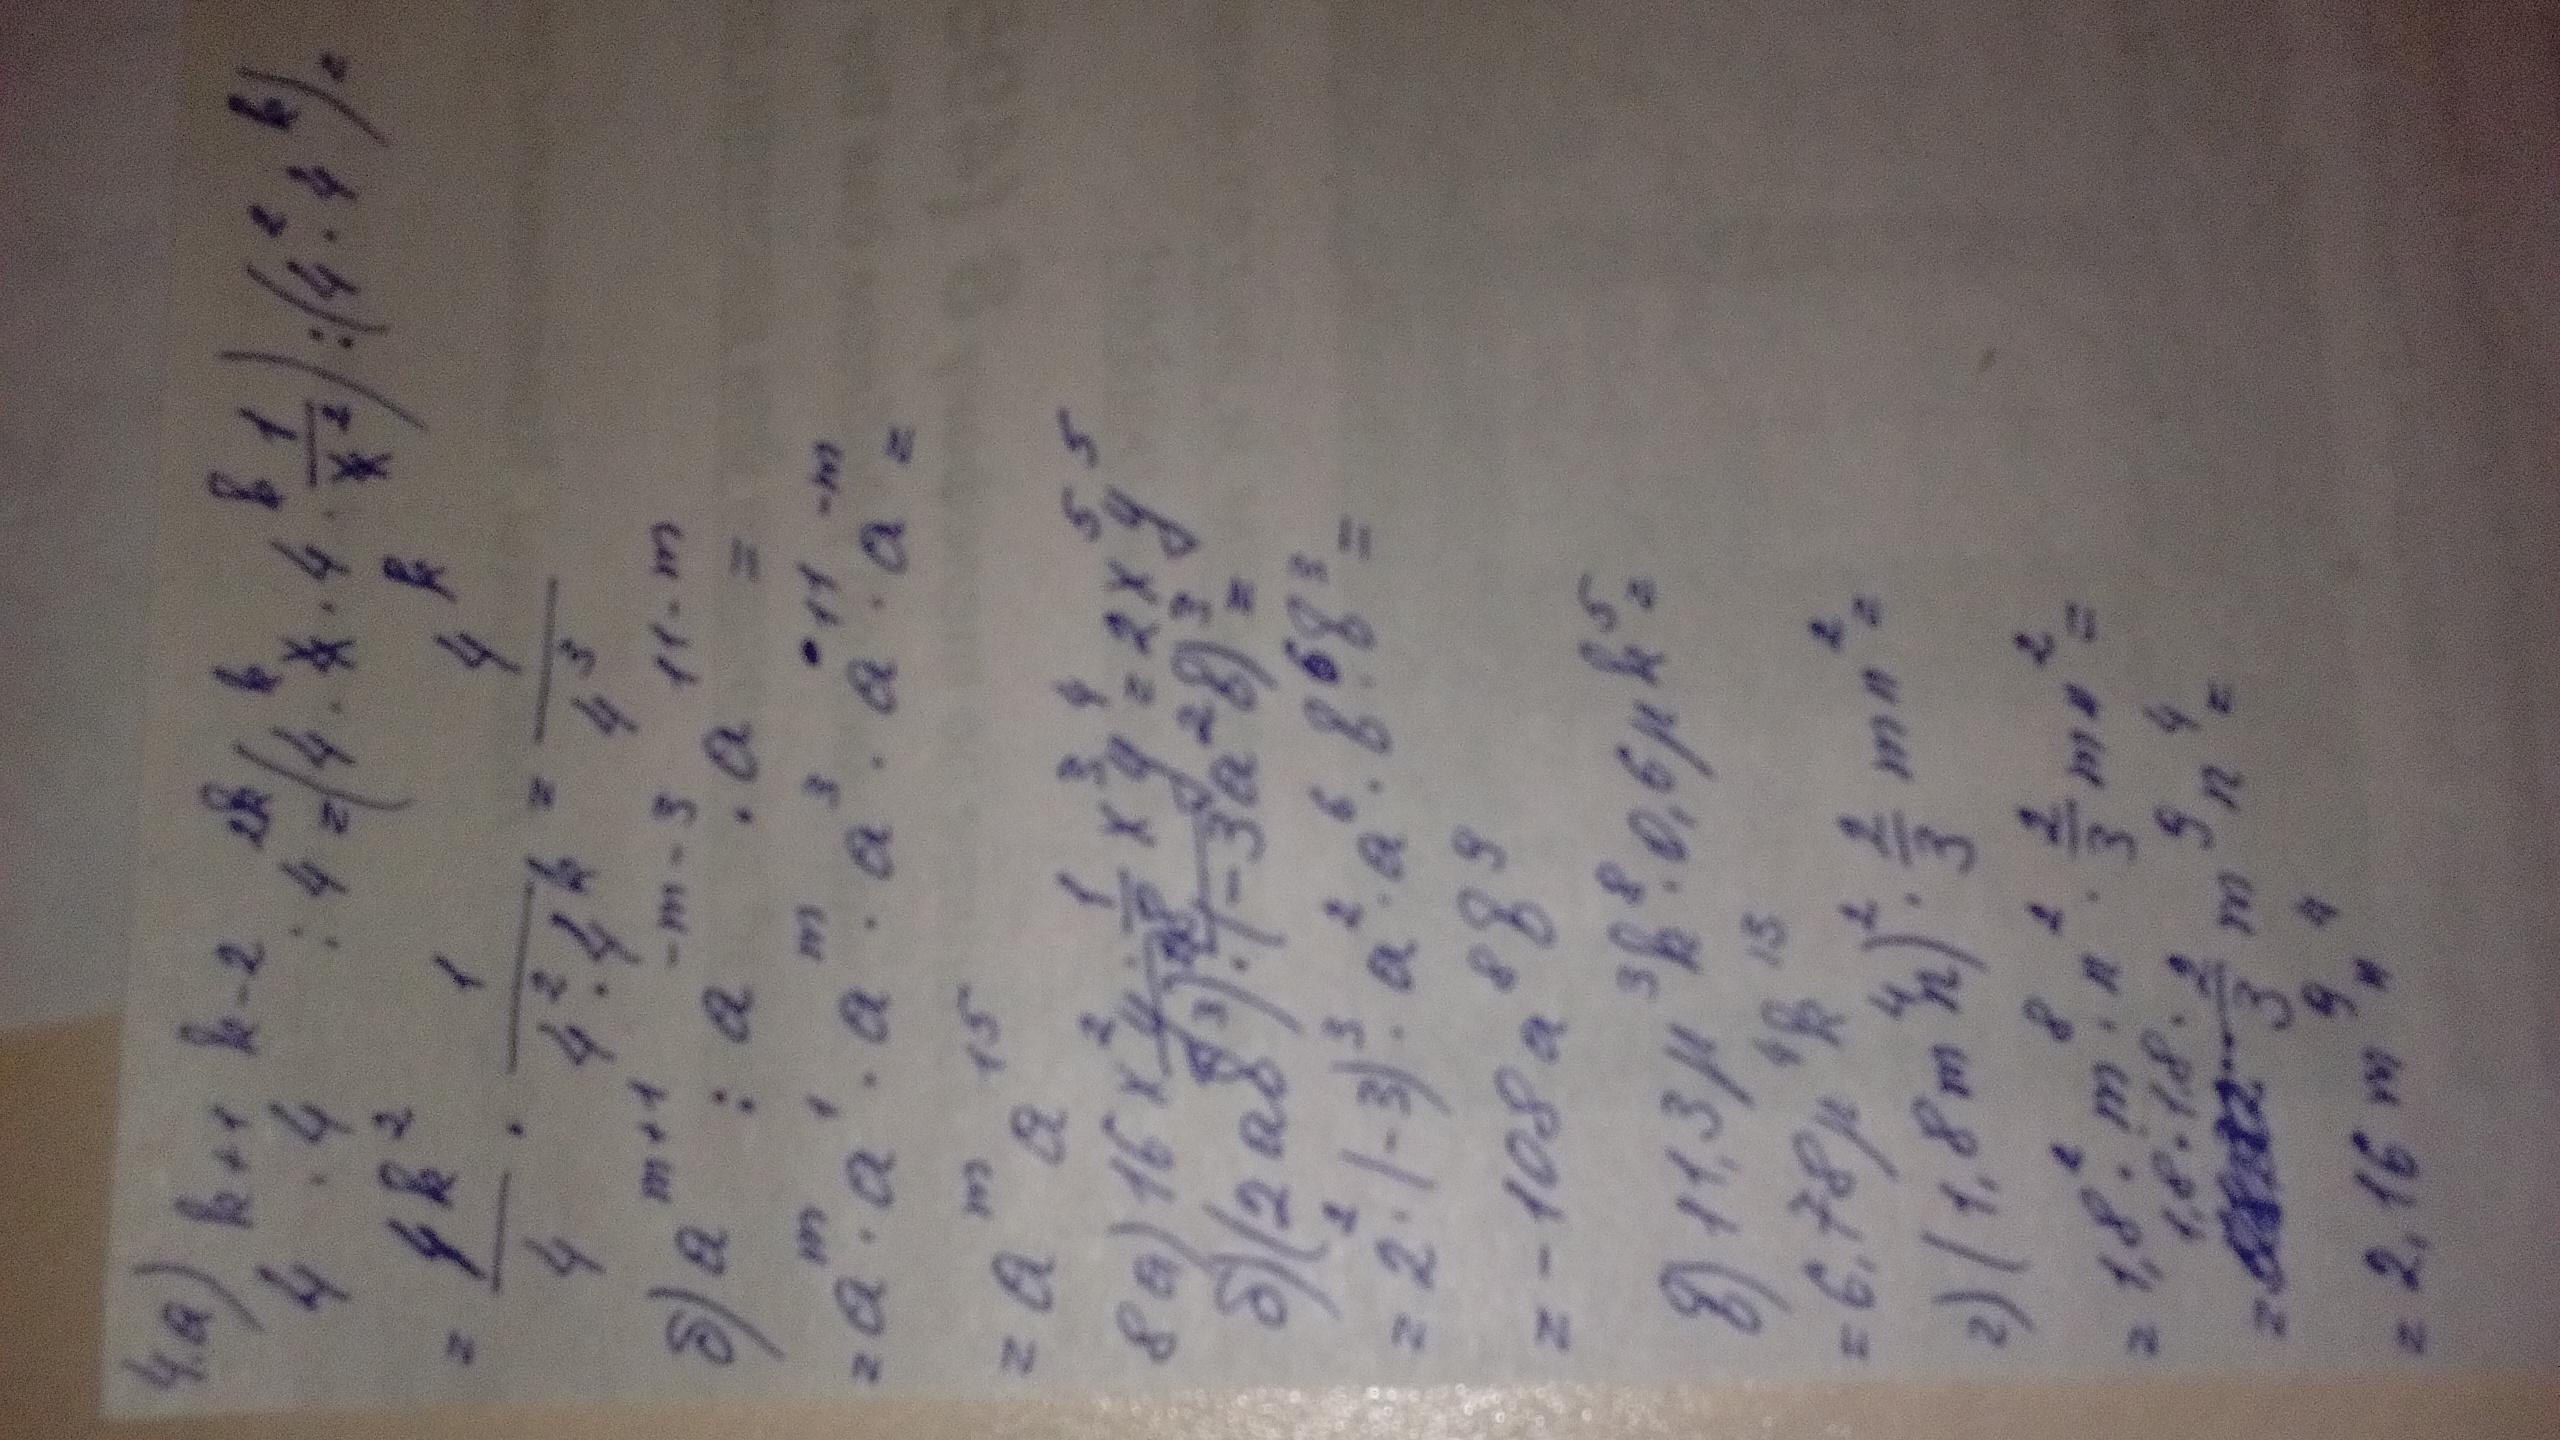 4.а) 4^(k+1) · 4^(k-2) : 4^(2k) = (4 · 4^k · 4 · 4^k · 1/4^2) : (4^2 · 4^k) =
= 4^(k^2)/4 · 1/(4^2 · 4^k) = 4^k/4^3
б) a^(m+1) : a^(-m-3) · a^(11-m) =
= a^m · a^1 · a^m · a^3 · a^11 · a^(-m) =
= a^m a^15
8 а) 16x^2y · 1/8 x^3y^4 = 2x^5y^5
б) (2ab^3)^2 · (-3a^2b)^3 =
= 2^2 · (-3)^3 · a^2 · a^6 · b^6 b^3 =
= -108a^8b^9
в) 11,3µ^3k^8 · 0,6µk^5 =
= 6,78µ^4k^13
г) (1,8m^4n)^2 · 2/3 mn^2 =
= 1,8^2 · m^8 · n^2 · 2/3 mn^2 =
= 1,8 · 1,8 · 2/3 m^9n^4 =
= 2,16m^9n^4